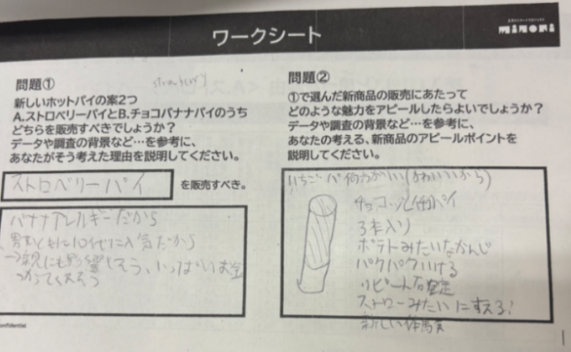 ワークシート
MINORI
問題①
新しいホットパイの案2つ
A.ストロベリーパイとB.チョコバナナパイのうち
どちらを販売すべきでしょうか?
データや調査の背景など…を参考に、
あなたがそう考えた理由を説明してください。
ストロベリーパイ
を販売すべき。
バナナアレルギーだから
男女ともに10代に人気だから
→親にも影響しそう、いっぱいお金
つかってくれそう
問題②
①で選んだ新商品の販売にあたって
どのような魅力をアピールしたらよいでしょうか?
データや調査の背景など…を参考に、
あなたの考える、新商品のアピールポイントを
説明してください。
いちごパイのうがいい(かわいいから)
チョコソース付パイ
3本入り
ポテトみたいなかんじ
パクパクいける
リピート
ストローみたいにすえる!
新しい
onfidential